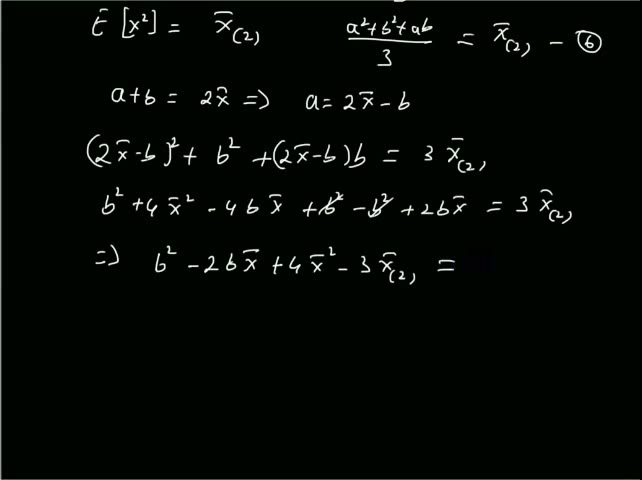 E [x²] = x̄₍₂₎   (a²+b²+ab)/3 = x̄₍₂₎ – ⑥
a+b = 2x̄ => a = 2x̄ – b
(2x̄–b)² + b² + (2x̄–b)b = 3 x̄₍₂₎
b² + 4x̄² – 4bx̄ + b² – b² + 2bx̄ = 3 x̄₍₂₎
=> b² – 2bx̄ + 4x̄² – 3x̄₍₂₎ =